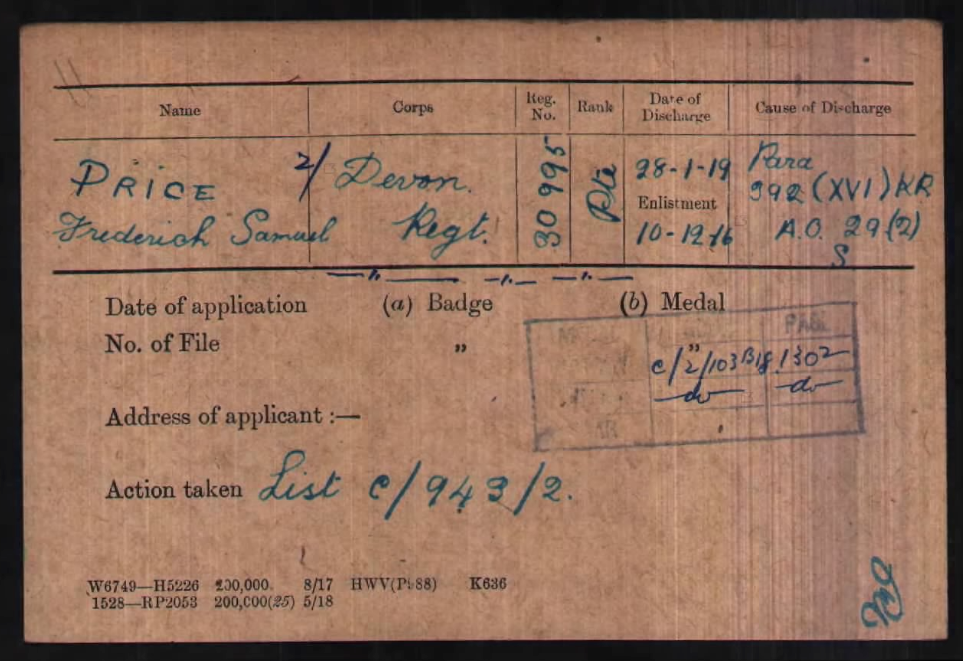 Name Corps Reg. No. Rank Date of Discharge Cause of Discharge
PRICE 2/ Devon. 30995 Pte 28-1-19 Para
Enlistment 392 (XVI) KR
Frederich Samuel Regt. 10-12-16 A.O. 29(2)
S
Date of application (a) Badge (b) Medal
No. of File " "
PAGE
C/2/103B18 1302
do do
Address of applicant :—
Action taken List C/943/2.
W6749—H5226 200,000. 8/17 HWV(P188) K636
1528—RP2053 200,000(25) 5/18